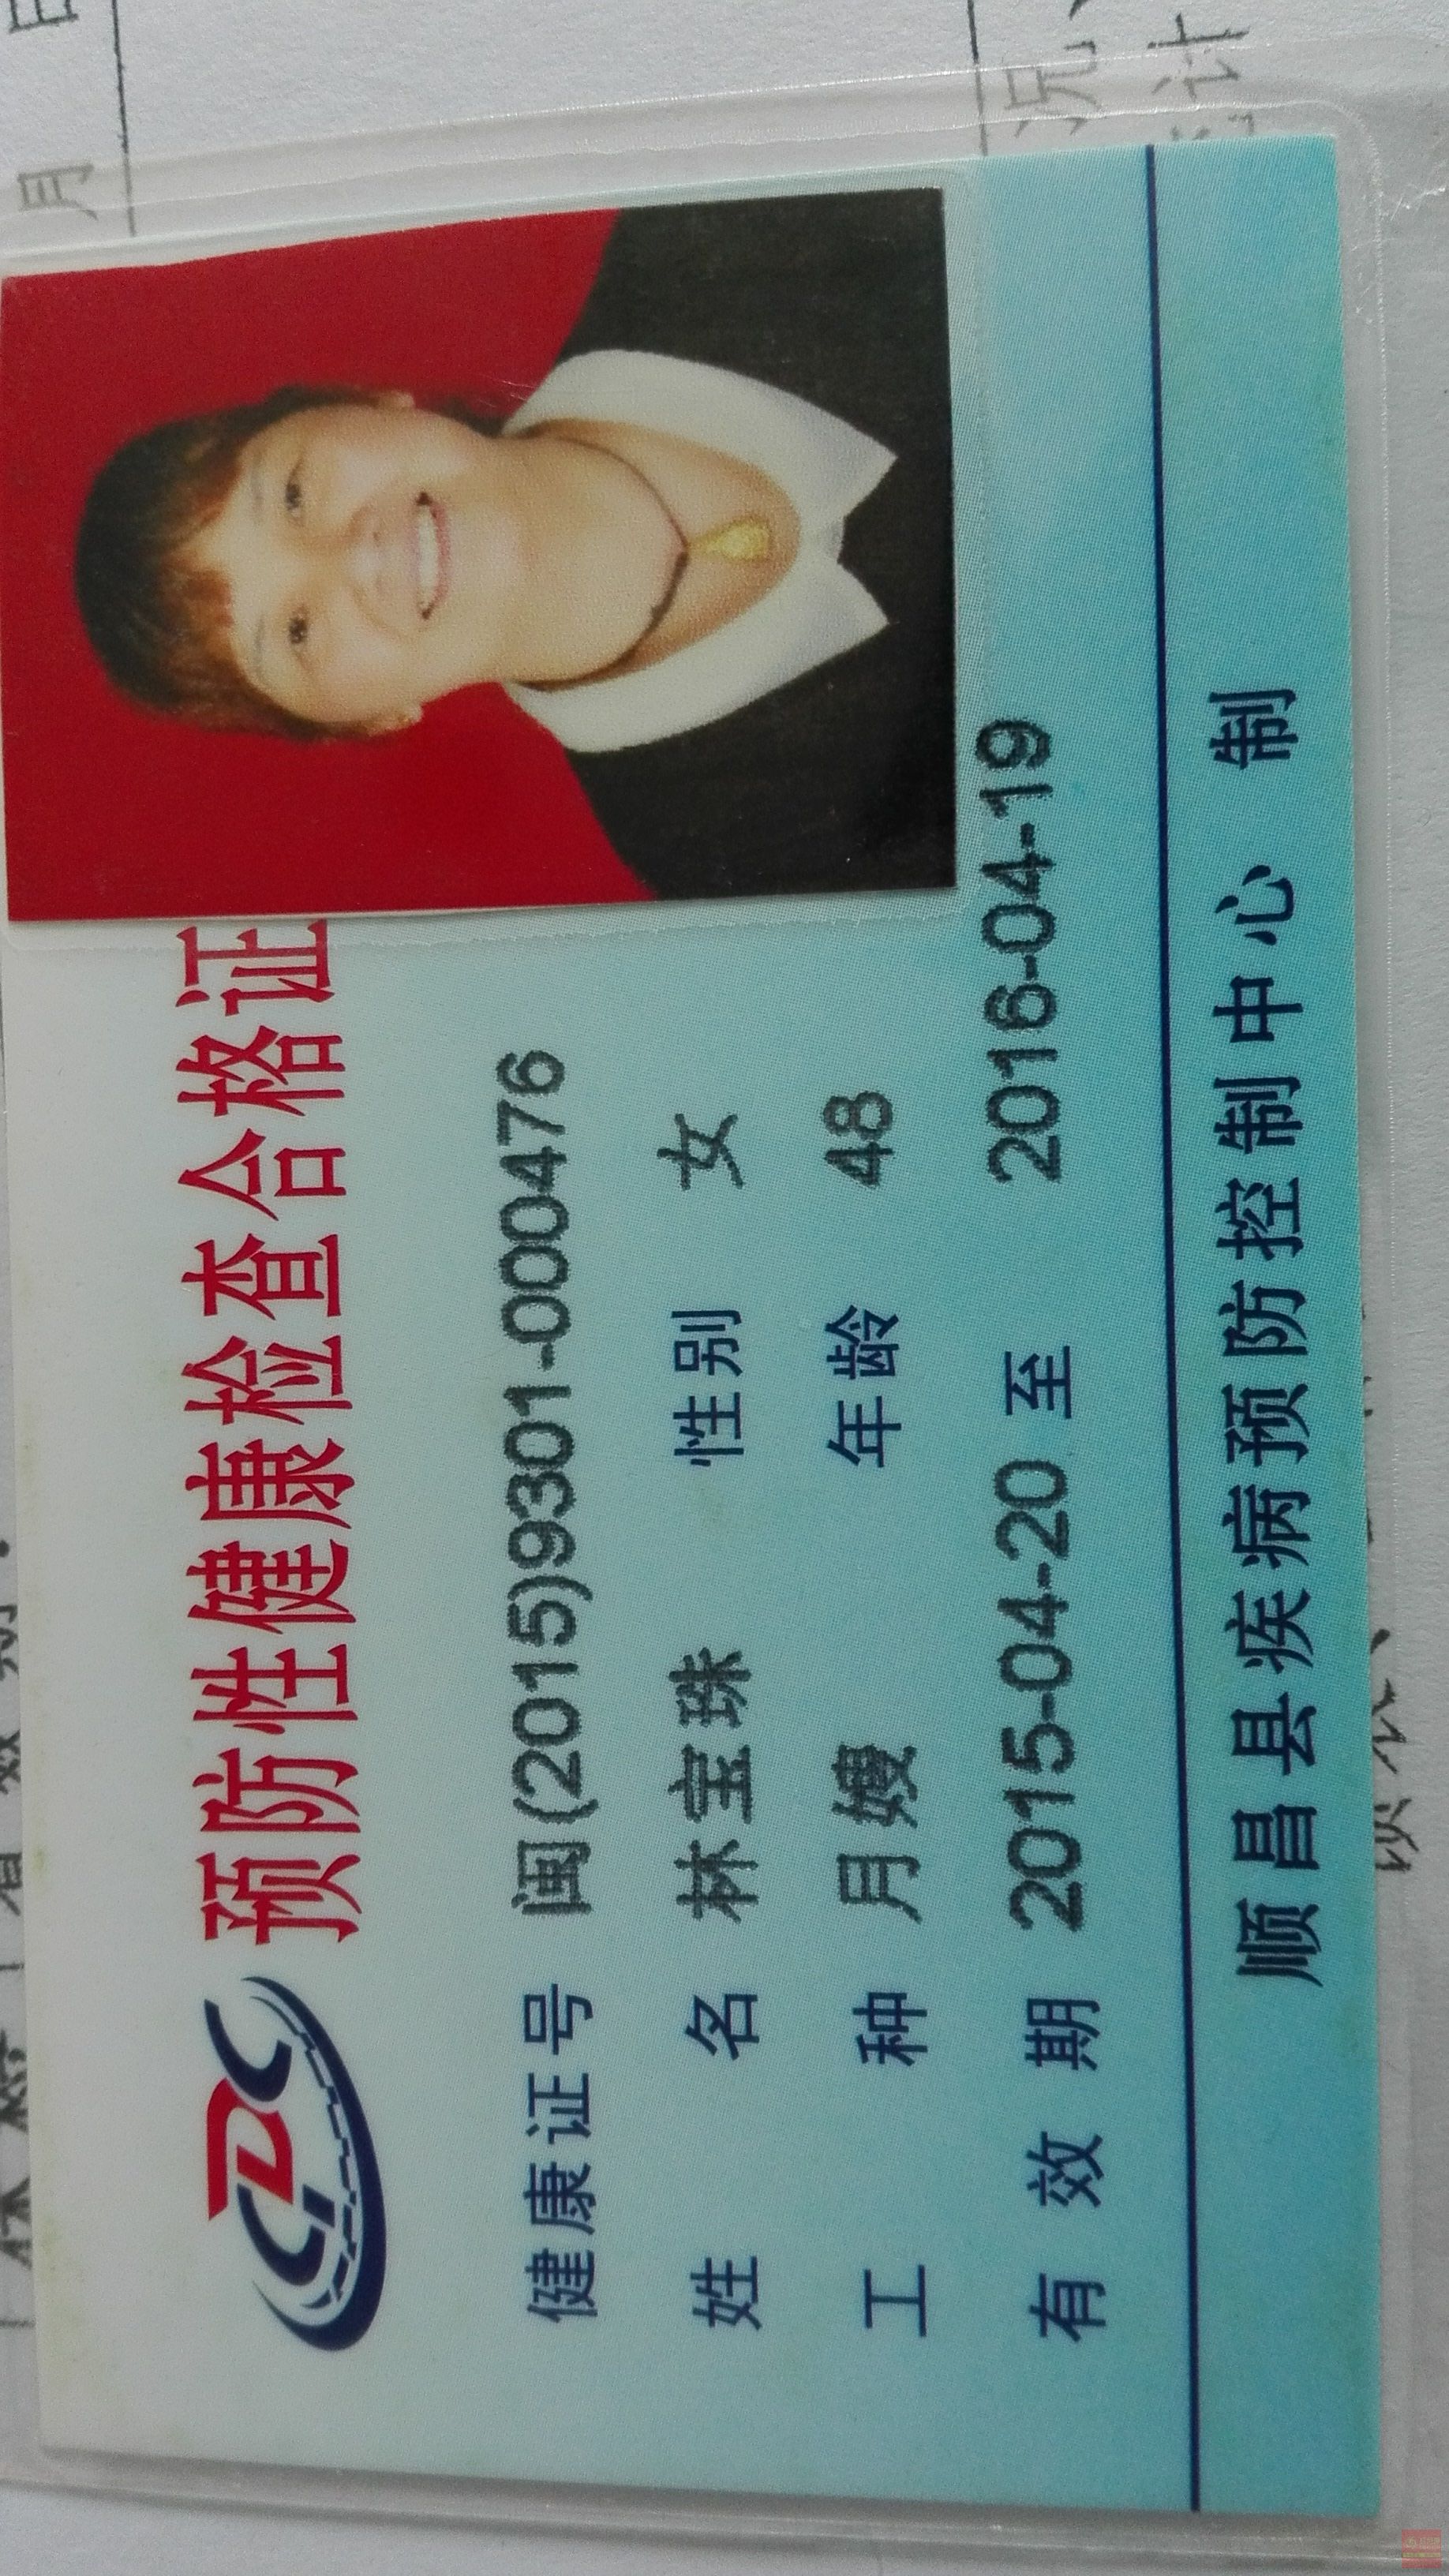 CDC 预防性健康检查合格证
健康证号 闽(2015)9301-000476
姓名 林宝珠 性别 女
工种 月嫂 年龄 48
有效期 2015-04-20 至 2016-04-19
顺昌县疾病预防控制中心 制
月
况
计